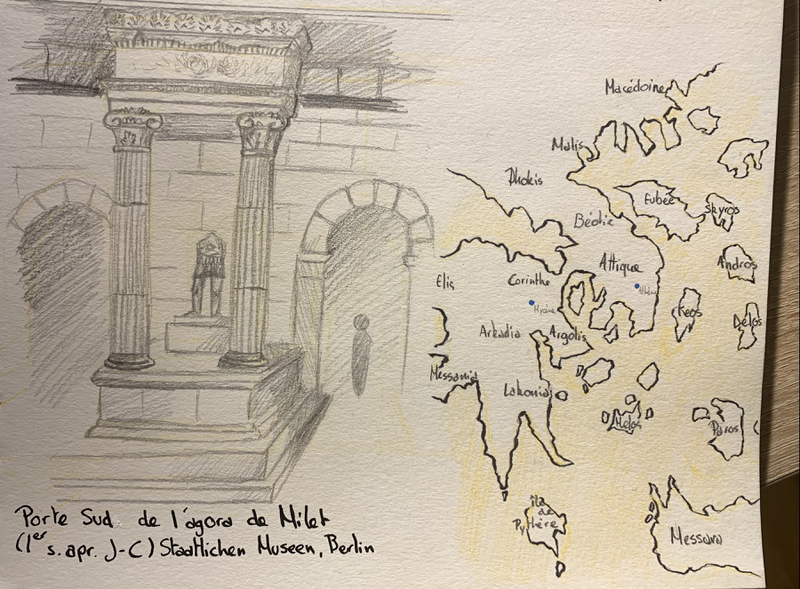 Macédoine
Malis
Phokis
Eubée
Skyros
Béotie
Attique
Andros
Elis
Corinthe
Athènes
Mycène
Keos
Délos
Arkadia
Argolis
Messania
Lakonia
Mélos
Paros
île
de
Pythère
Messara
Porte Sud de l'agora de Milet
(1er s. apr. J-C) Staatlichen Museen, Berlin